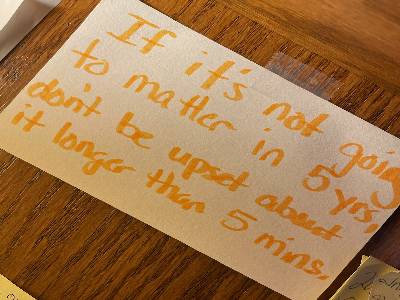 If it's not going
to matter in 5 yrs,
don't be upset about
it longer than 5 mins.